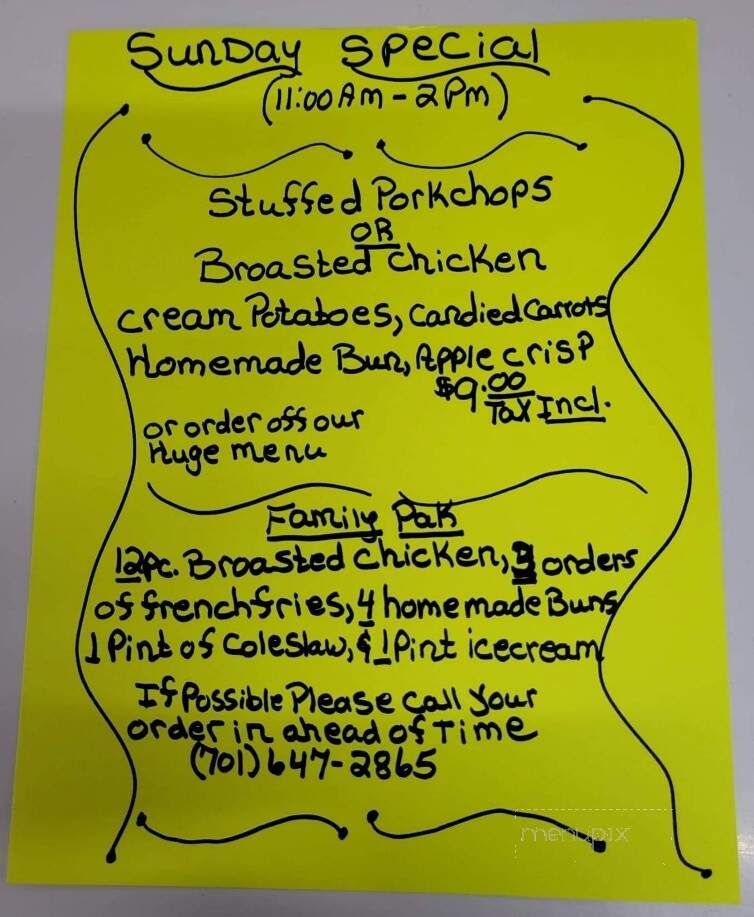 Sunday Special
(11:00 Am - 2 Pm)
Stuffed Porkchops
OR
Broasted Chicken
Cream Potatoes, Candied Carrots
Homemade Bun, Apple crisp
$9.00
Tax Incl.
or order off our
Huge menu
Family Pak
12pc. Broasted Chicken, 3 orders
of french fries, 4 homemade Buns
1 Pint of Coleslaw, & 1 Pint icecream
If Possible Please call your
order in ahead of Time
(701) 647-2865
menupix